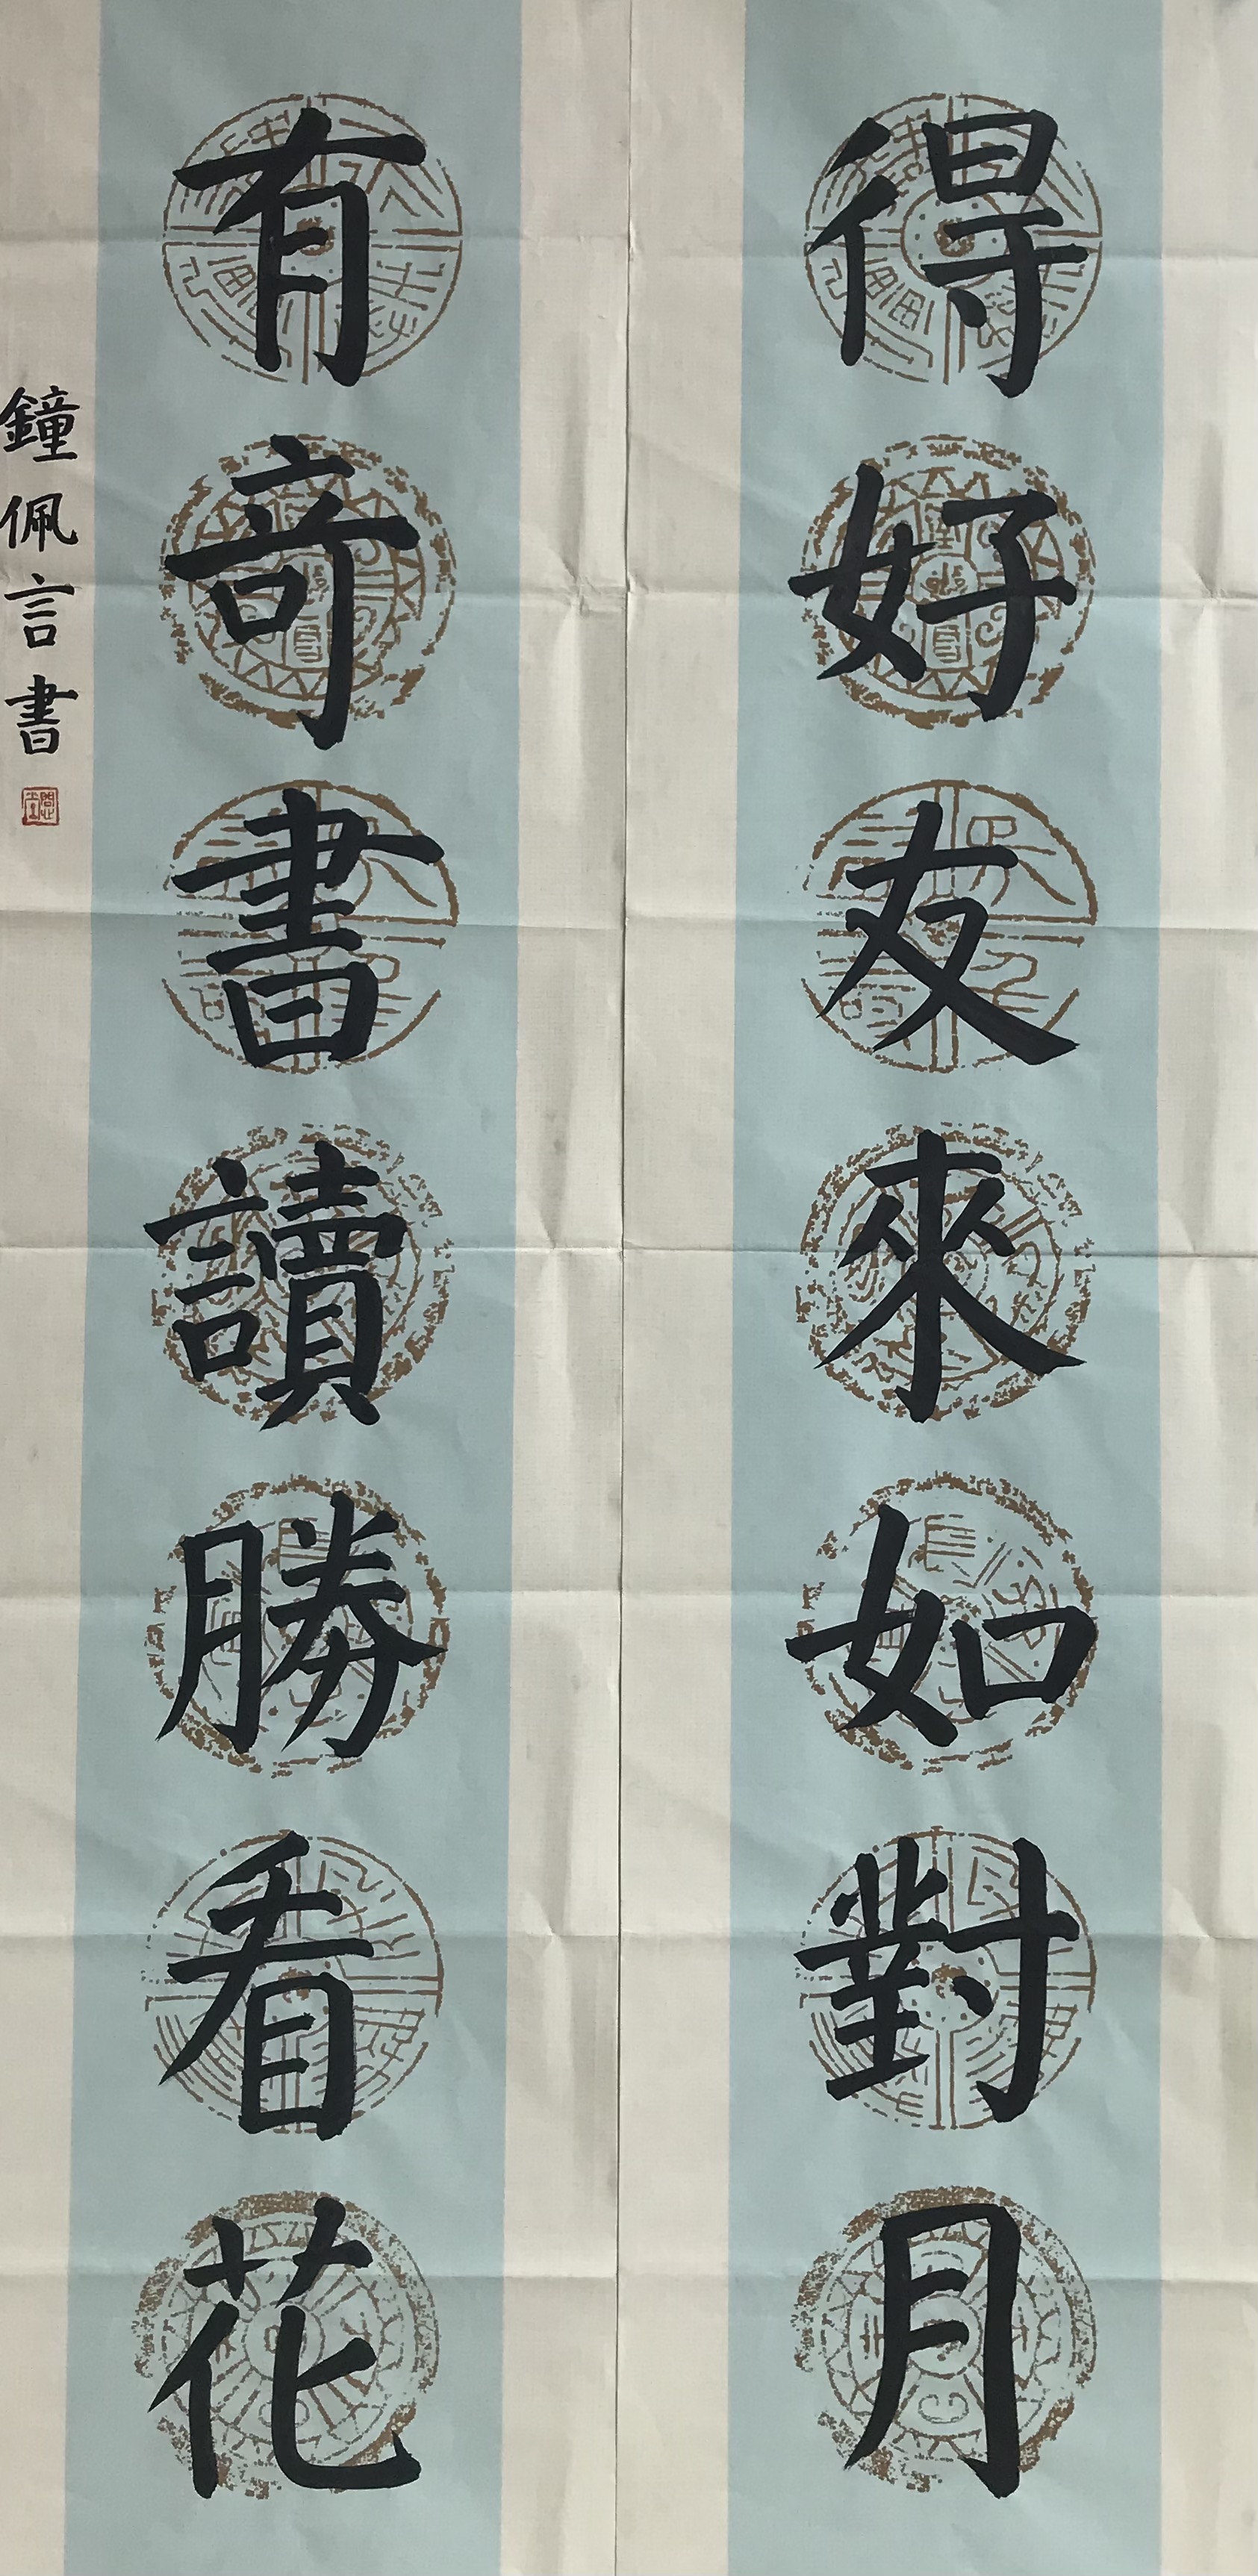 得好友來如對月
有奇書讀勝看花
鐘佩言書